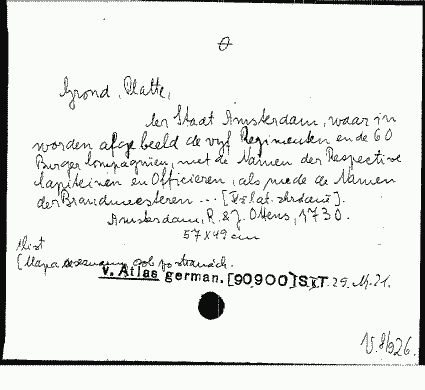 Grond, Platte,
der Staat Amsterdam, waar in
worden afgebeeld de vyf Regimenten en de 60
Burger Compagnien, met de Namen der Respective
Capiteinen en Officieren, als mede de Namen
der Brandmeesteren ... [
Amsterdam, R. & J. Ottens, 1730.
57 x 49 cm
[Mapa
v. Atlas german. [90900] S.I.T. 29. M. 21.
V. 8/926.